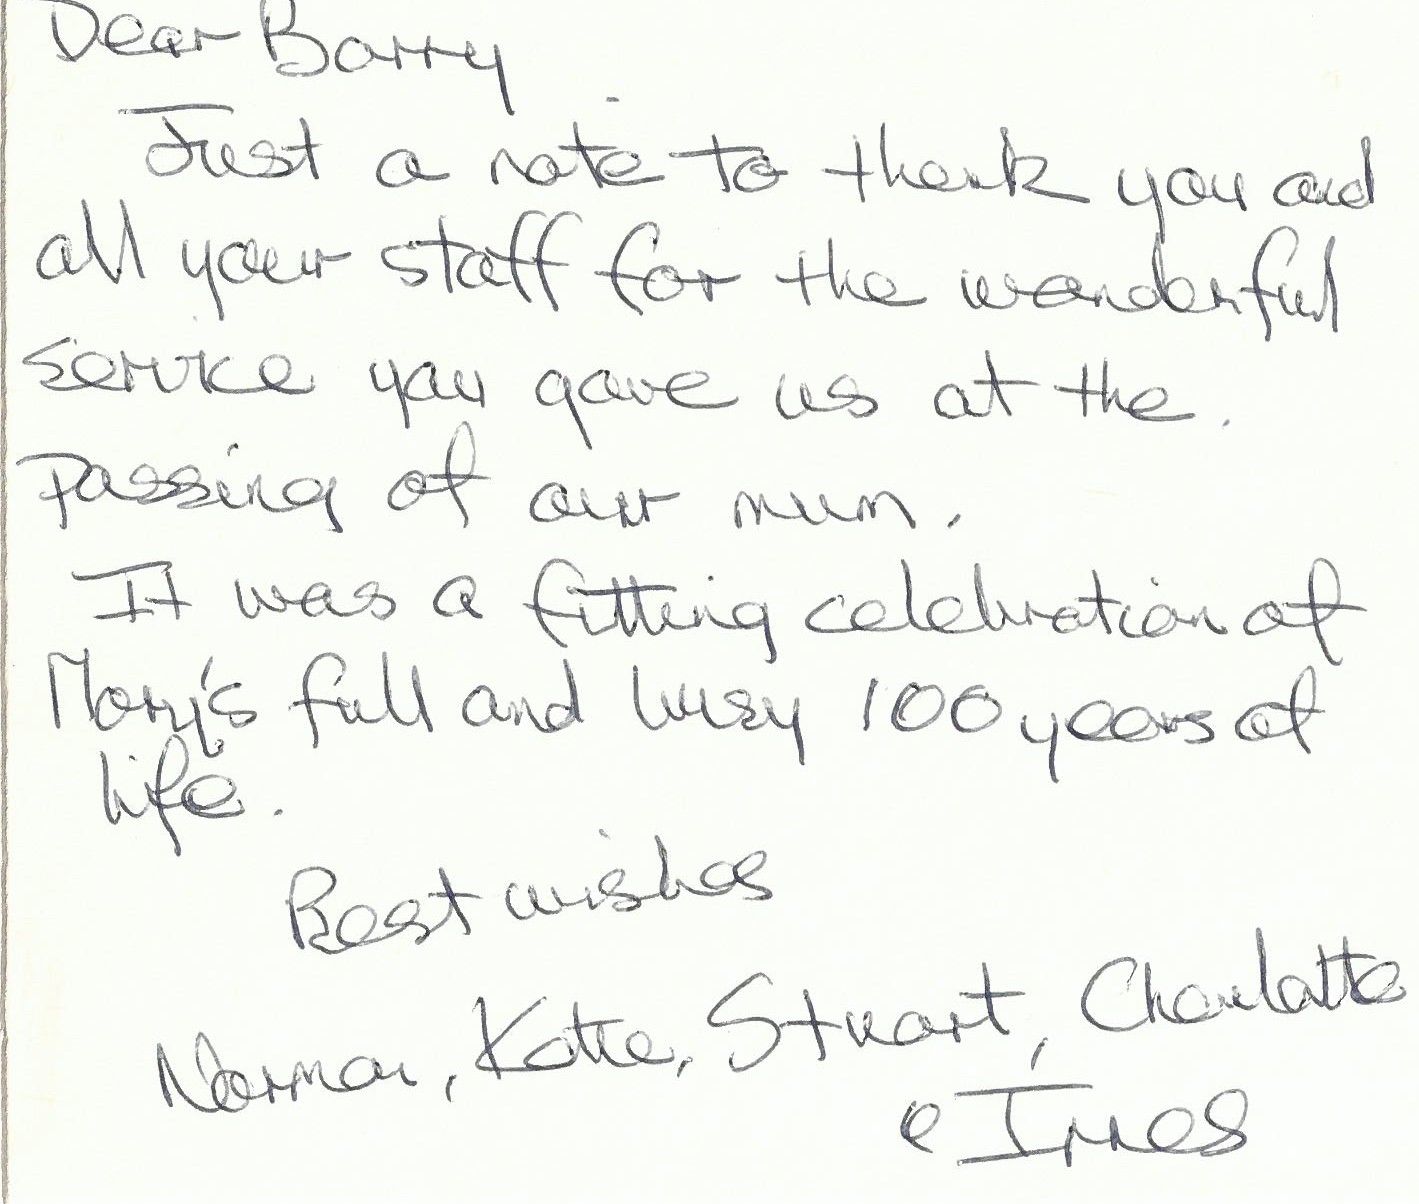 Dear Barry
Just a note to thank you and
all your staff for the wonderful
service you gave us at the
passing of our mum.
It was a fitting celebration of
Mary's full and busy 100 years of
life.
Best wishes
Norman, Katie, Stuart, Charlotte
e Innes